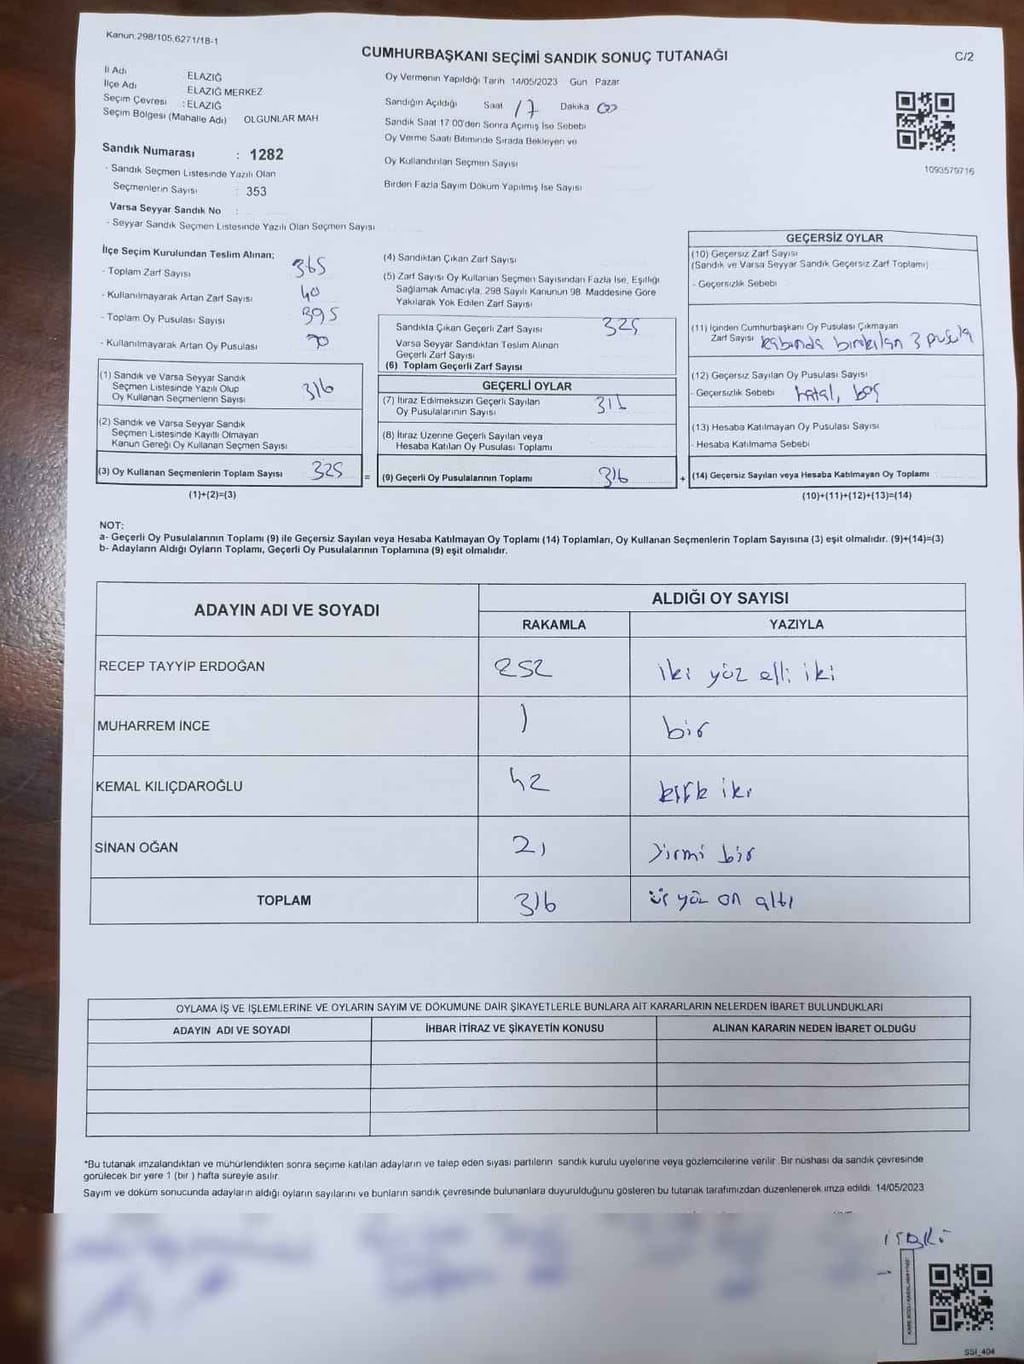 Kanun.298/105,6271/18-1
CUMHURBAŞKANI SEÇİMİ SANDIK SONUÇ TUTANAĞI
C/2
İl Adı ELAZIĞ
İlçe Adı ELAZIĞ MERKEZ
Seçim Çevresi : ELAZIĞ
Seçim Bölgesi (Mahalle Adı) OLGUNLAR MAH
Oy Vermenin Yapıldığı Tarih 14/05/2023 Gün Pazar
Sandığın Açıldığı Saat 17 Dakika 00
Sandık Saat 17:00'den Sonra Açımış İse Sebebi
Oy Verme Saati Bitiminde Sırada Bekleyen ve
Oy Kullandırılan Seçmen Sayısı
Birden Fazla Sayım Döküm Yapılmış İse Sayısı
1093579716
Sandık Numarası : 1282
- Sandık Seçmen Listesinde Yazılı Olan
Seçmenlerin Sayısı : 353
Varsa Seyyar Sandık No :
- Seyyar Sandık Seçmen Listesinde Yazılı Olan Seçmen Sayısı
İlçe Seçim Kurulundan Teslim Alınan;
- Toplam Zarf Sayısı 365
- Kullanılmayarak Artan Zarf Sayısı 40
- Toplam Oy Pusulası Sayısı 395
- Kullanılmayarak Artan Oy Pusulası 70
(1) Sandık ve Varsa Seyyar Sandık
Seçmen Listesinde Yazılı Olup
Oy Kullanan Seçmenlerin Sayısı 316
(2) Sandık ve Varsa Seyyar Sandık
Seçmen Listesinde Kayıtlı Olmayan
Kanun Gereği Oy Kullanan Seçmen Sayısı
(3) Oy Kullanan Seçmenlerin Toplam Sayısı 325 =
(1)+(2)=(3)
(4) Sandıktan Çıkan Zarf Sayısı
(5) Zarf Sayısı Oy Kullanan Seçmen Sayısından Fazla İse, Eşitliği
Sağlamak Amacıyla, 298 Sayılı Kanunun 98. Maddesine Göre
Yakılarak Yok Edilen Zarf Sayısı
Sandıkla Çıkan Geçerli Zarf Sayısı 325
Varsa Seyyar Sandıktan Teslim Alınan
Geçerli Zarf Sayısı
(6) Toplam Geçerli Zarf Sayısı
GEÇERLİ OYLAR
(7) İtiraz Edilmeksizin Geçerli Sayılan
Oy Pusulalarının Sayısı 316
(8) İtiraz Üzerine Geçerli Sayılan veya
Hesaba Katılan Oy Pusulası Toplamı
(9) Geçerli Oy Pusulalarının Toplamı 316 +
GEÇERSİZ OYLAR
(10) Geçersiz Zarf Sayısı
(Sandık ve Varsa Seyyar Sandık Geçersiz Zarf Toplamı)
- Geçersizlik Sebebi
(11) İçinden Cumhurbaşkanı Oy Pusulası Çıkmayan
Zarf Sayısı kabında bırakılan 3 pusula
(12) Geçersiz Sayılan Oy Pusulası Sayısı
- Geçersizlik Sebebi hatal, boş
(13) Hesaba Katılmayan Oy Pusulası Sayısı
- Hesaba Katılmama Sebebi
(14) Geçersiz Sayılan veya Hesaba Katılmayan Oy Toplamı
(10)+(11)+(12)+(13)=(14)
NOT:
a- Geçerli Oy Pusulalarının Toplamı (9) ile Geçersiz Sayılan veya Hesaba Katılmayan Oy Toplamı (14) Toplamları, Oy Kullanan Seçmenlerin Toplam Sayısına (3) eşit olmalıdır. (9)+(14)=(3)
b- Adayların Aldığı Oyların Toplamı, Geçerli Oy Pusulalarının Toplamına (9) eşit olmalıdır.
ADAYIN ADI VE SOYADI
ALDIĞI OY SAYISI
RAKAMLA YAZIYLA
RECEP TAYYİP ERDOĞAN 252 iki yüz elli iki
MUHARREM İNCE 1 bir
KEMAL KILIÇDAROĞLU 42 kırk iki
SİNAN OĞAN 21 yirmi bir
TOPLAM 316 üç yüz on altı
OYLAMA İŞ VE İŞLEMLERİNE VE OYLARIN SAYIM VE DÖKÜMÜNE DAİR ŞİKAYETLERLE BUNLARA AİT KARARLARIN NELERDEN İBARET BULUNDUKLARI
ADAYIN ADI VE SOYADI İHBAR İTİRAZ VE ŞİKAYETİN KONUSU ALINAN KARARIN NEDEN İBARET OLDUĞU
*Bu tutanak imzalandıktan ve mühürlendikten sonra seçime katılan adayların ve talep eden siyasi partilerin sandık kurulu üyelerine veya gözlemcilerine verilir. Bir nüshası da sandık çevresinde
görülecek bir yere 1 (bir ) hafta süreyle asılır.
Sayım ve döküm sonucunda adayların aldığı oyların sayılarını ve bunların sandık çevresinde bulunanlara duyurulduğunu gösteren bu tutanak tarafımızdan düzenlenerek imza edildi. 14/05/2023
SSI_404